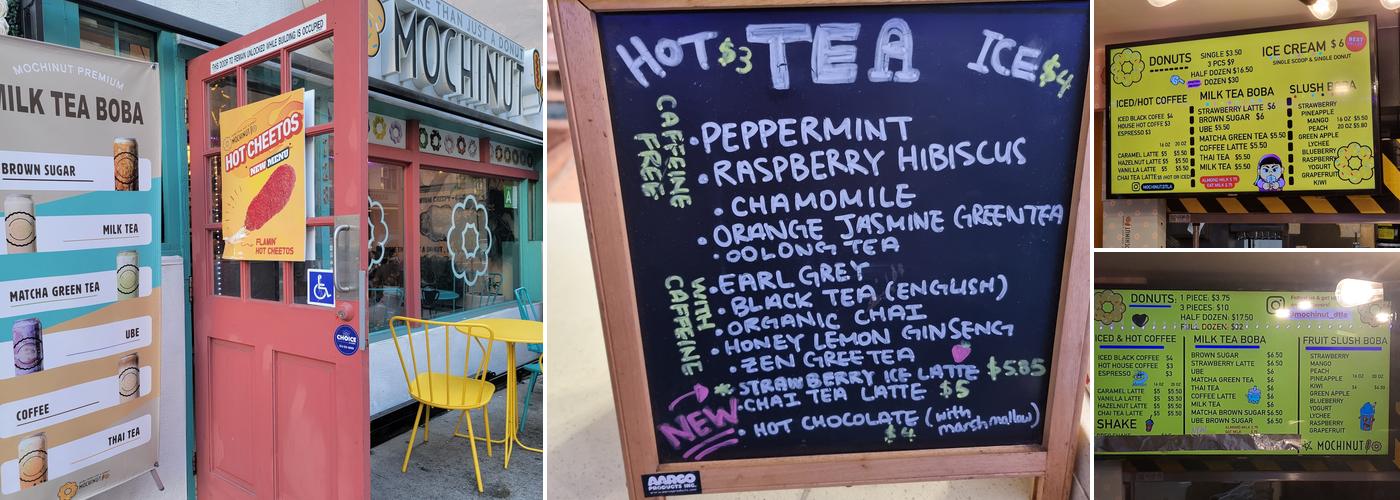 MOCHINUT PREMIUM
MILK TEA BOBA
BROWN SUGAR
MILK TEA
MATCHA GREEN TEA
UBE
COFFEE
THAI TEA
MOCHINUT
THIS DOOR TO REMAIN UNLOCKED WHILE BUILDING IS OCCUPIED
HOT CHEETOS
NEW MENU
FLAMIN'
HOT CHEETOS
CHOICE
MORE THAN JUST A DONUT
MOCHINUT
A
HOT $3 TEA ICE $4
CAFFEINE
FREE
• PEPPERMINT
• RASPBERRY HIBISCUS
• CHAMOMILE
• ORANGE JASMINE (GREENTEA
• OOLONG TEA
WITH
CAFFEINE
• EARL GREY
• BLACK TEA (ENGLISH)
• ORGANIC CHAI
• HONEY LEMON GINSENG
• ZEN GREE TEA
* STRAWBERRY ICE LATTE $5.85
• CHAI TEA LATTE $5
NEW
• HOT CHOCOLATE (with marshmallow)
$4
AARCO
PRODUCTS INC.
DONUTS
SINGLE $3.50
3 PCS $9
HALF DOZEN $16.50
DOZEN $30
ICE CREAM $6
SINGLE SCOOP & SINGLE DONUT
BEST
ICED/HOT COFFEE
ICED BLACK COFFEE $4
HOUSE HOT COFFEE $3
ESPRESSO $3
16 OZ 20 OZ
CARAMEL LATTE $5 $5.50
HAZELNUT LATTE $5 $5.50
VANILLA LATTE $5 $5.50
CHAI TEA LATTE
MOCHINUTDTLA
MILK TEA BOBA
STRAWBERRY LATTE $6
BROWN SUGAR $6
UBE $5.50
MATCHA GREEN TEA $5.50
COFFEE LATTE $5.50
THAI TEA $5.50
MILK TEA $5.50
ALMOND MILK $.75
OAT MILK $.75
SLUSH
STRAWBERRY
PINEAPPLE
MANGO
PEACH
16 OZ $5.50
20 OZ $5.80
GREEN APPLE
LYCHEE
BLUEBERRY
RASPBERRY
YOGURT
GRAPEFRUIT
KIWI
DONUTS
1 PIECE: $3.75
3 PIECES: $10
HALF DOZEN: $17.50
FULL DOZEN: $32
@mochinut_dtla
ICED & HOT COFFEE
ICED BLACK COFFEE $4
HOT HOUSE COFFEE $4
ESPRESSO
16 OZ 20 OZ
CARAMEL LATTE $5 $5.50
VANILLA LATTE $5 $5.50
HAZELNUT LATTE $5 $5.50
CHAI TEA LATTE $5 $5.50
SHAKE
MILK TEA BOBA
BROWN SUGAR $6.50
STRAWBERRY LATTE $6.50
UBE $6
MATCHA GREEN TEA $6
THAI TEA $6
COFFEE LATTE $6
MILK TEA $6
MATCHA BROWN SUGAR $6.50
UBE BROWN SUGAR $6.50
FRUIT SLUSH BOBA
STRAWBERRY
MANGO
PEACH
PINEAPPLE
KIWI
GREEN APPLE
BLUEBERRY
YOGURT
LYCHEE
RASPBERRY
GRAPEFRUIT
MOCHINUT